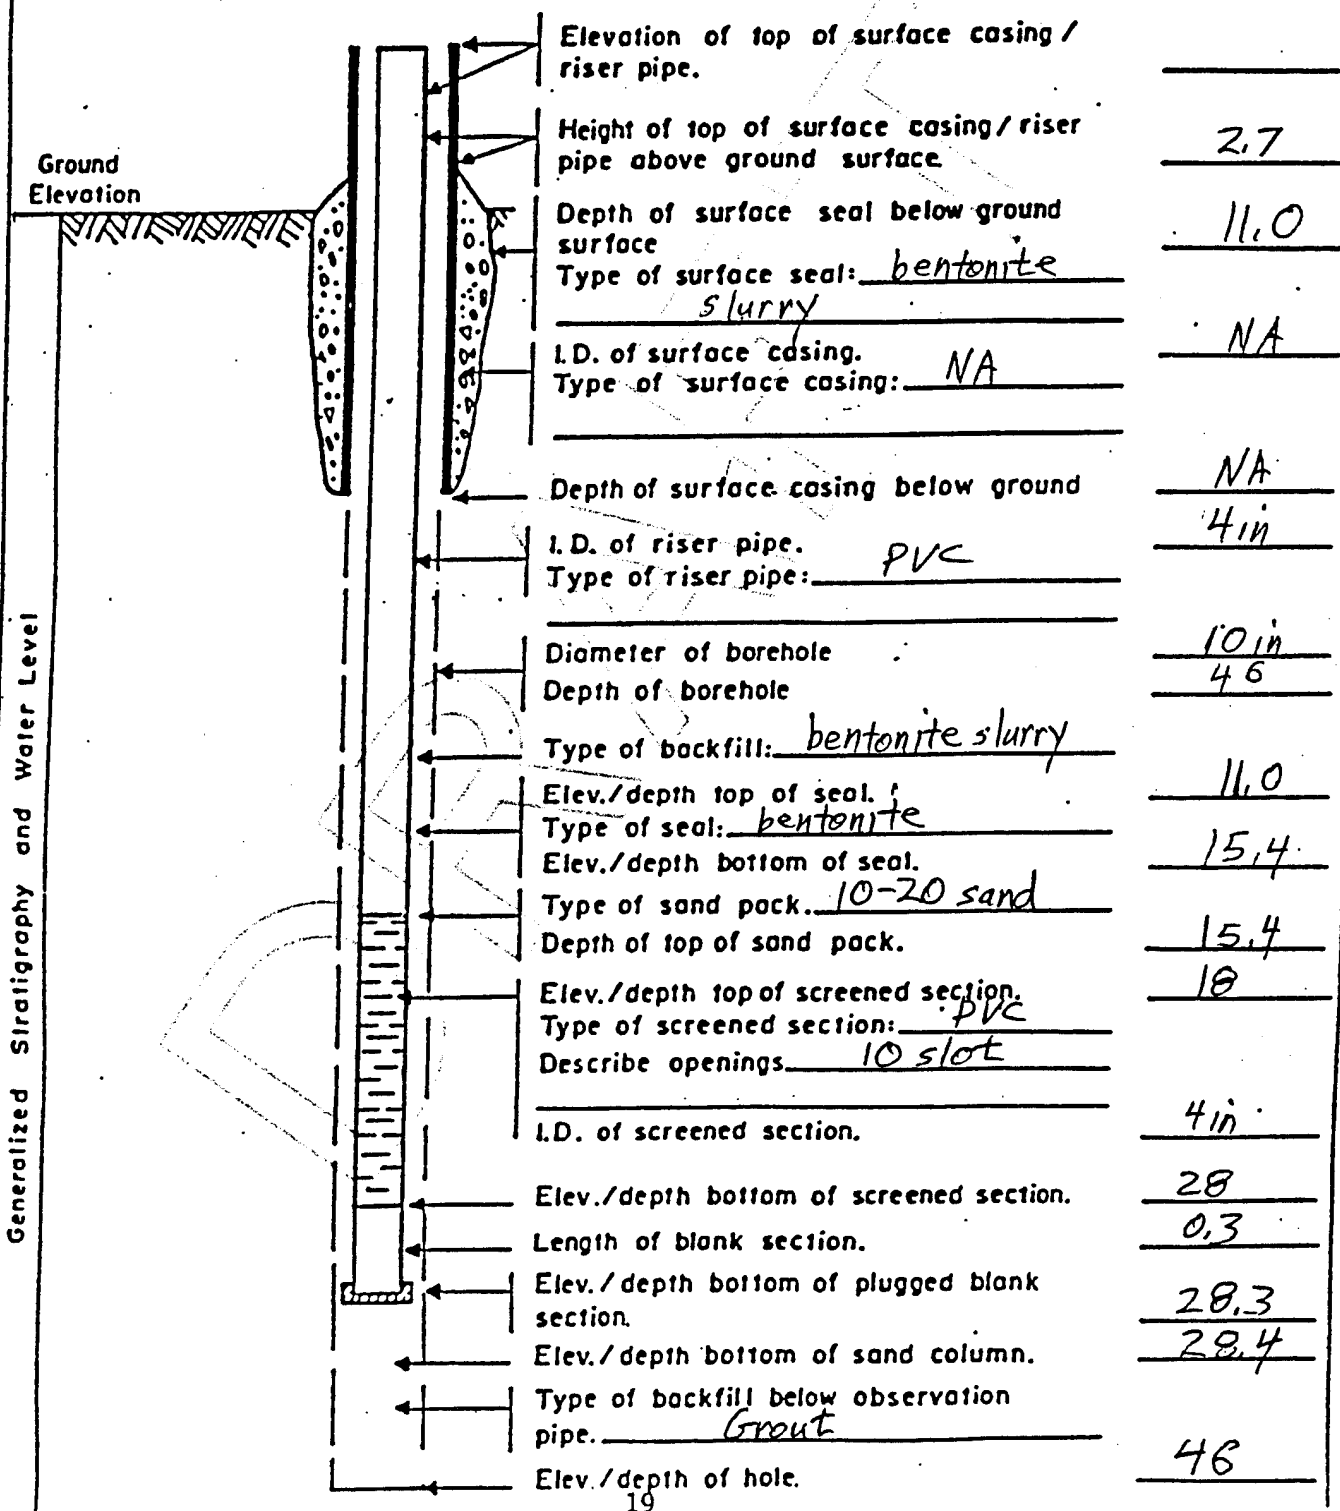 Elevation of top of surface casing /
riser pipe.
Height of top of surface casing / riser
pipe above ground surface 2.7
Ground
Elevation
Depth of surface seal below ground
surface 11.0
Type of surface seal: bentonite
slurry
I.D. of surface casing. NA
Type of surface casing: NA
Depth of surface casing below ground NA
I.D. of riser pipe. 4 in
Type of riser pipe: PVC
Diameter of borehole 10 in
Depth of borehole 46
Type of backfill: bentonite slurry
Elev./depth top of seal. 11.0
Type of seal: bentonite
Elev./depth bottom of seal. 15.4
Type of sand pack. 10-20 sand
Depth of top of sand pack. 15.4
Elev./depth top of screened section. 18
Type of screened section: PVC
Describe openings 10 slot
I.D. of screened section. 4 in
Elev./depth bottom of screened section. 28
Length of blank section. 0.3
Elev./depth bottom of plugged blank
section. 28.3
Elev./depth bottom of sand column. 28.4
Type of backfill below observation
pipe. Grout
Elev./depth of hole. 46
19
Generalized Stratigraphy and Water Level